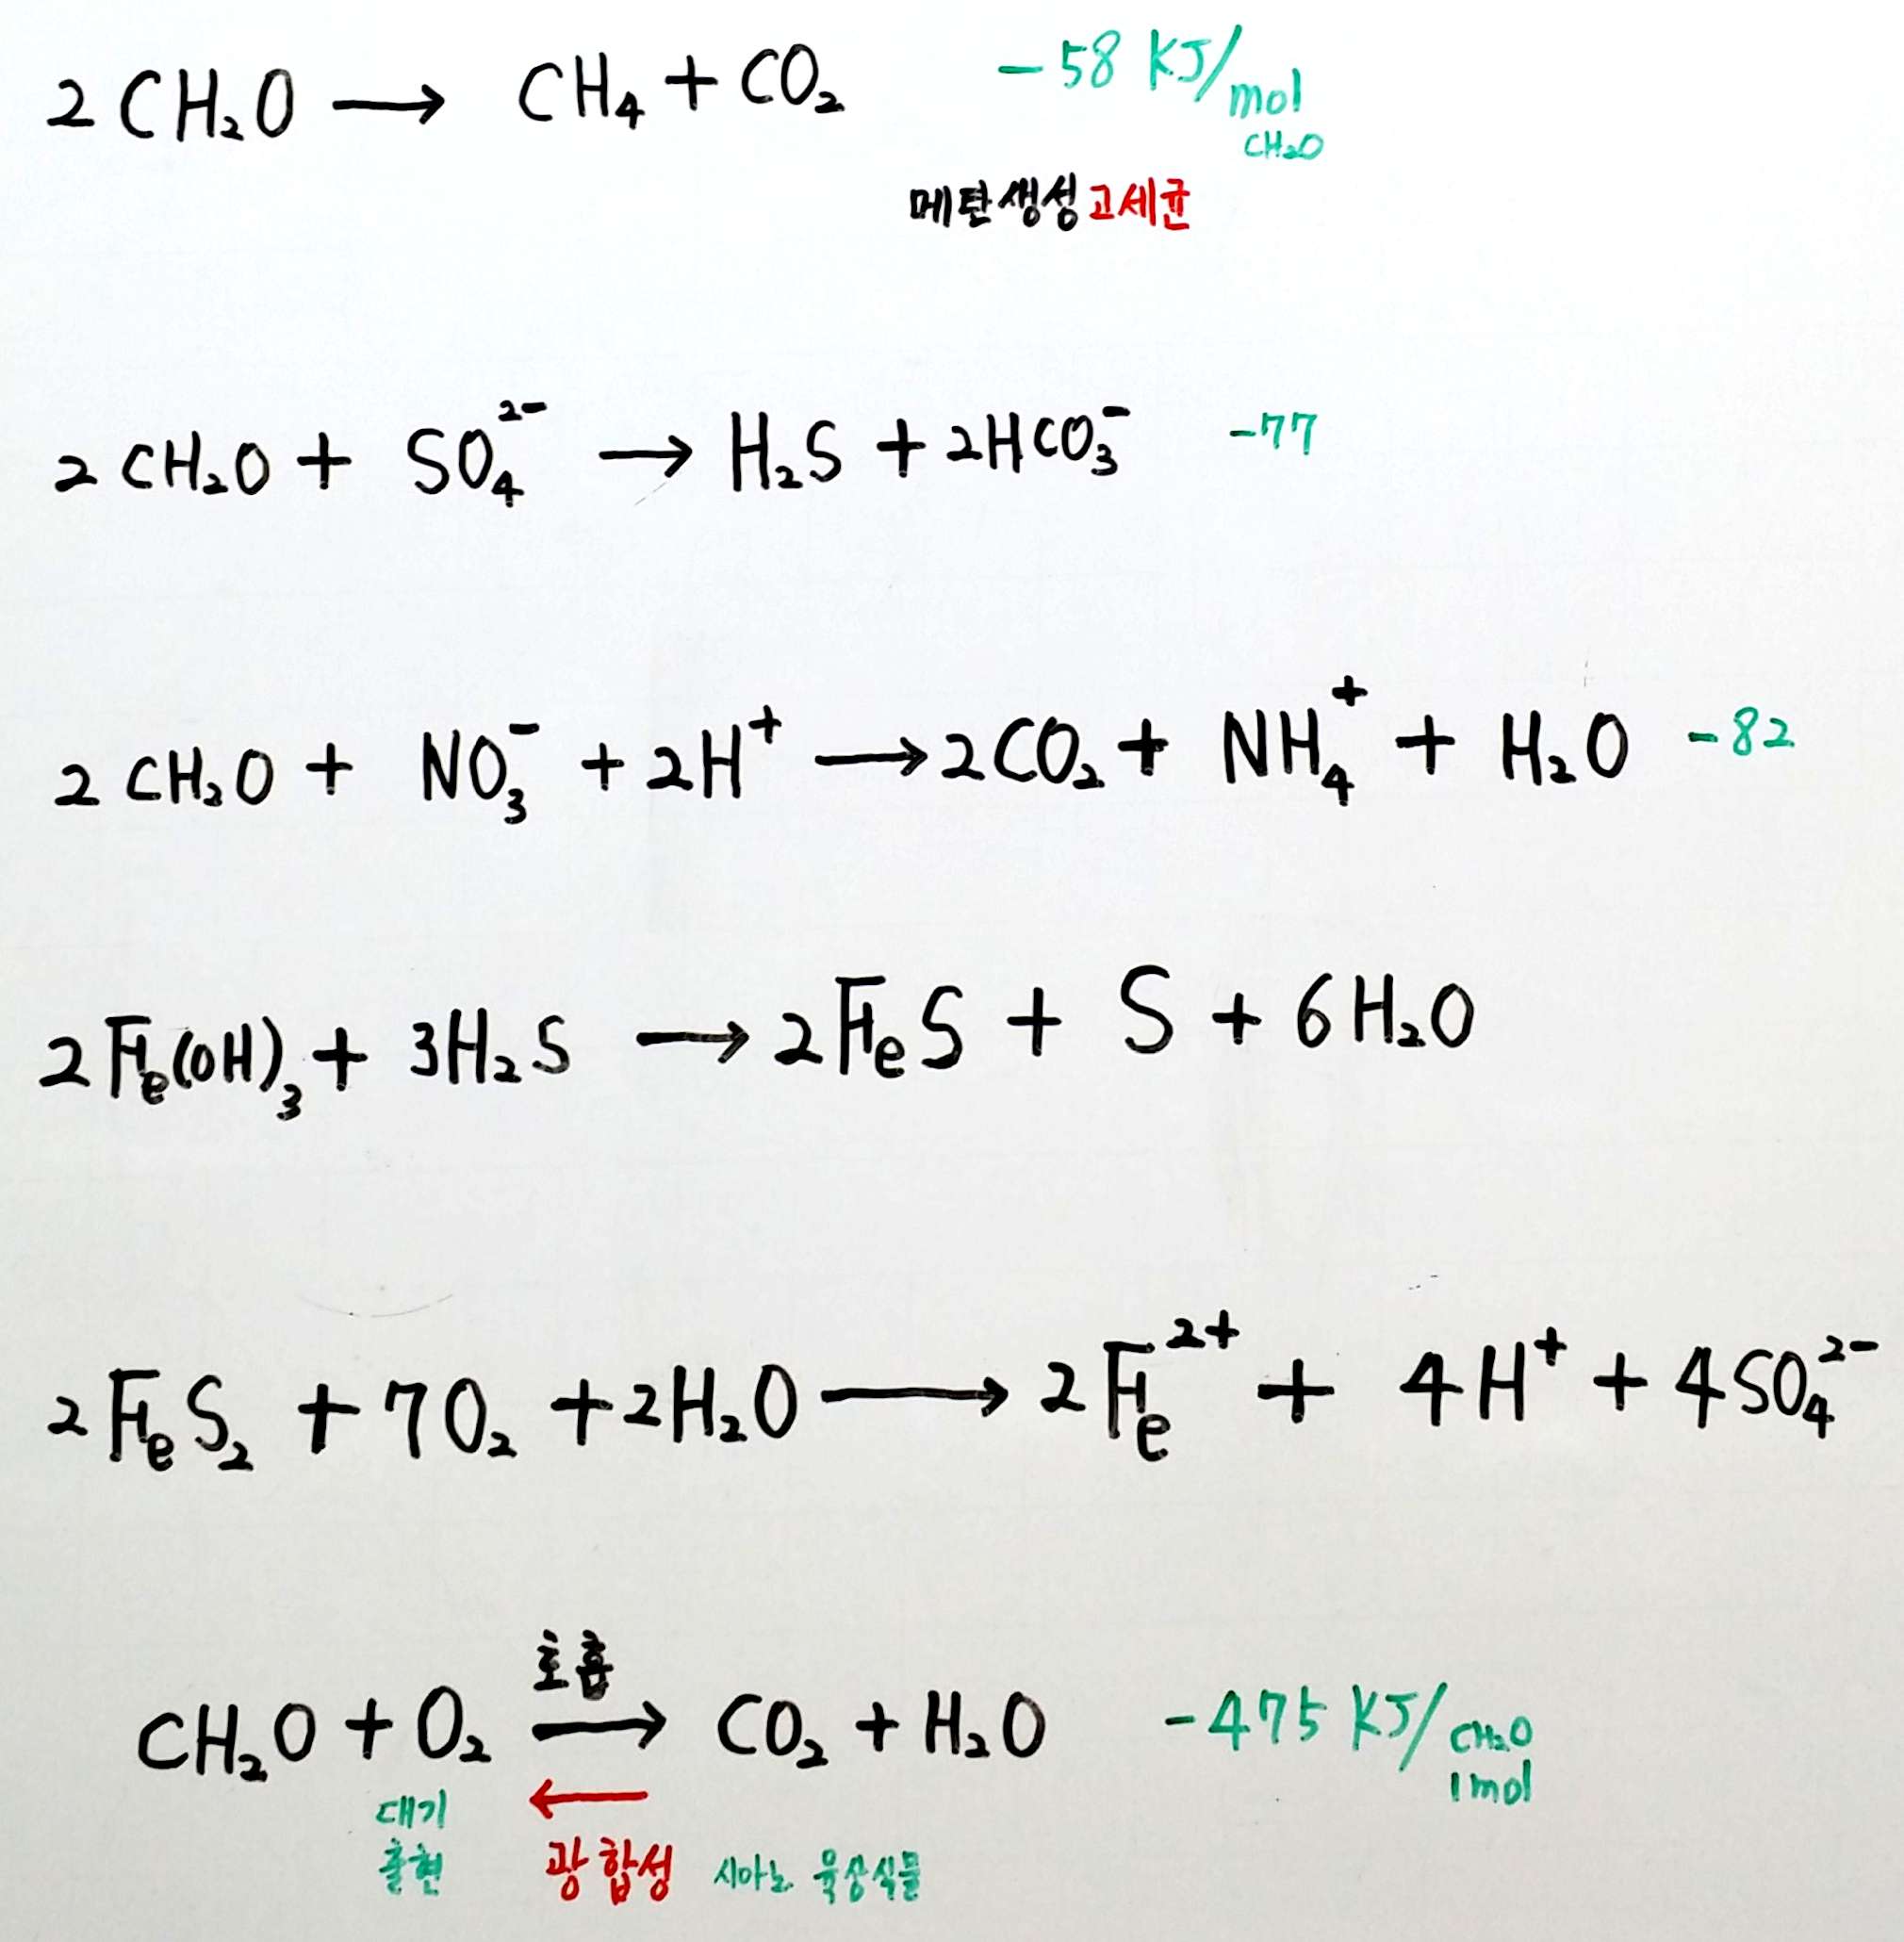 2CH₂O → CH₄ + CO₂ -58 KJ/mol CH₂O
메탄생성고세균
2CH₂O + SO₄²⁻ → H₂S + 2HCO₃⁻ -77
2CH₂O + NO₃⁻ + 2H⁺ → 2CO₂ + NH₄⁺ + H₂O -82
2Fe(OH)₃ + 3H₂S → 2FeS + S + 6H₂O
2FeS₂ + 7O₂ + 2H₂O → 2Fe²⁺ + 4H⁺ + 4SO₄²⁻
호흡
CH₂O + O₂ → CO₂ + H₂O -475 KJ/CH₂O 1mol
←
대기
출현 광합성 시아노 육상식물